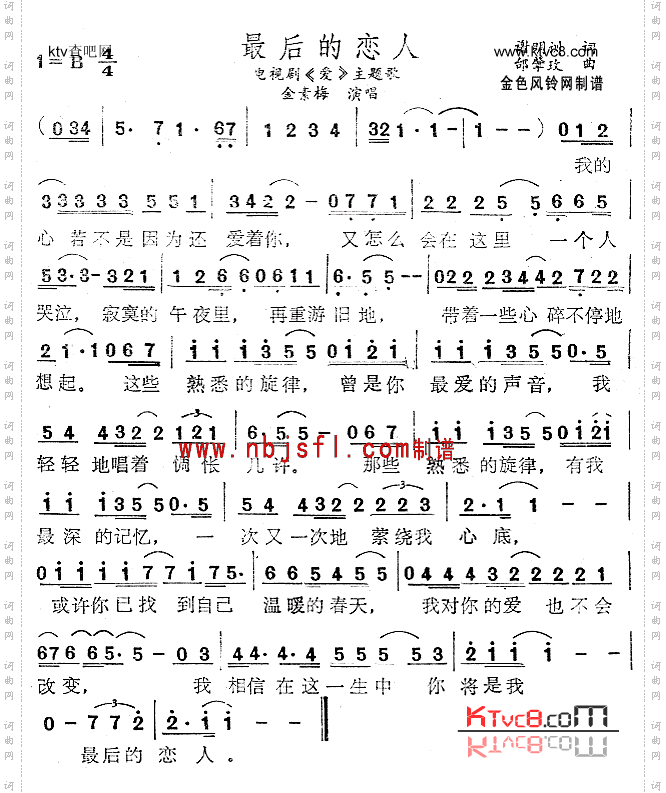 ktv查吧网
最后的恋人
www.Ktvc8.com
词
1=B 4/4
电视剧《爱》主题歌
曲
金素梅 演唱
金色风铃网制谱
(034 | 5· 7 1· 67 | 1 - - 34 | 321·1·1 | 1 - - ) 012 |
我的
333333 551 | 3422 - 0771 | 2225 5 | 6665
心若不是因为还 爱着你， 又怎么 会在这里 一个人
53·3-321 | 126 60611 | 6·55 - - | 022234427 22
哭泣， 寂寞的 午夜里， 再重游旧地， 带着一些心 碎不停地
21·1067 | 11 1350 | 0121 | 11 13550·5
想起。 这些 熟悉的旋律， 曾是你 最爱的声音， 我
54 4322 121 | 6·55 - 067 | 11 1355 0121
轻轻 地唱着 惆怅 几许。 那些 熟悉的旋律，有我
www.nbjsfl.com制谱
11 13550·5 | 54 4322223 | 2·1 1 -
最深的记忆， 一 次又一次地 萦绕我 心底，
0111177 1175· | 665455 | 0444322222
或许你已找 到自己 温暖的春天， 我对你的爱 也不会
6766 65·5 - 03 | 44·4·4 555 53 | 2·11 1 -
改变， 我 相信在这一生中 你 将是我
0 - 772 | 2·11 - - |
最后的 恋 人。
KTvc8.com
词曲网